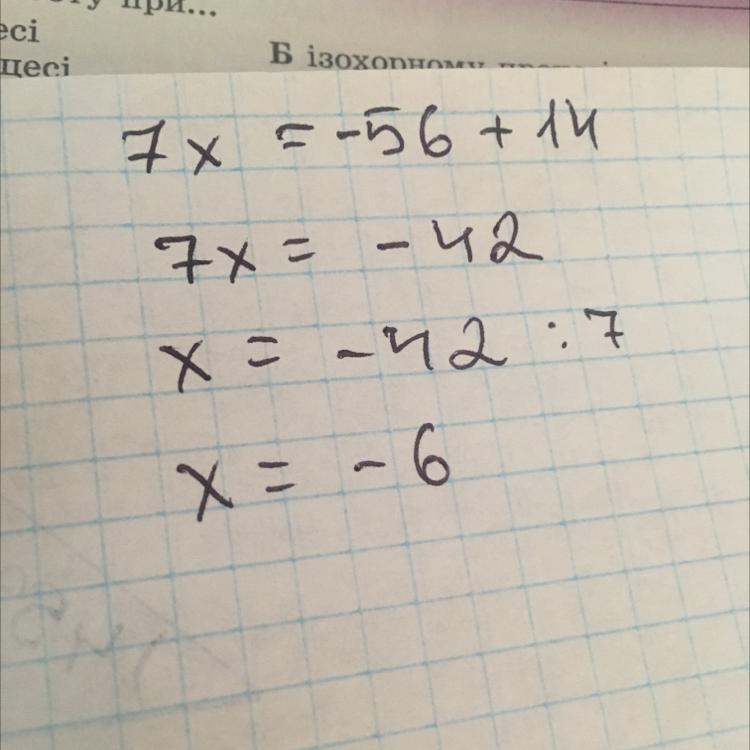 при...
есі
цесі
Б ізохорному
7x = -56 + 14
7x = - 42
x = - 42 : 7
x = - 6